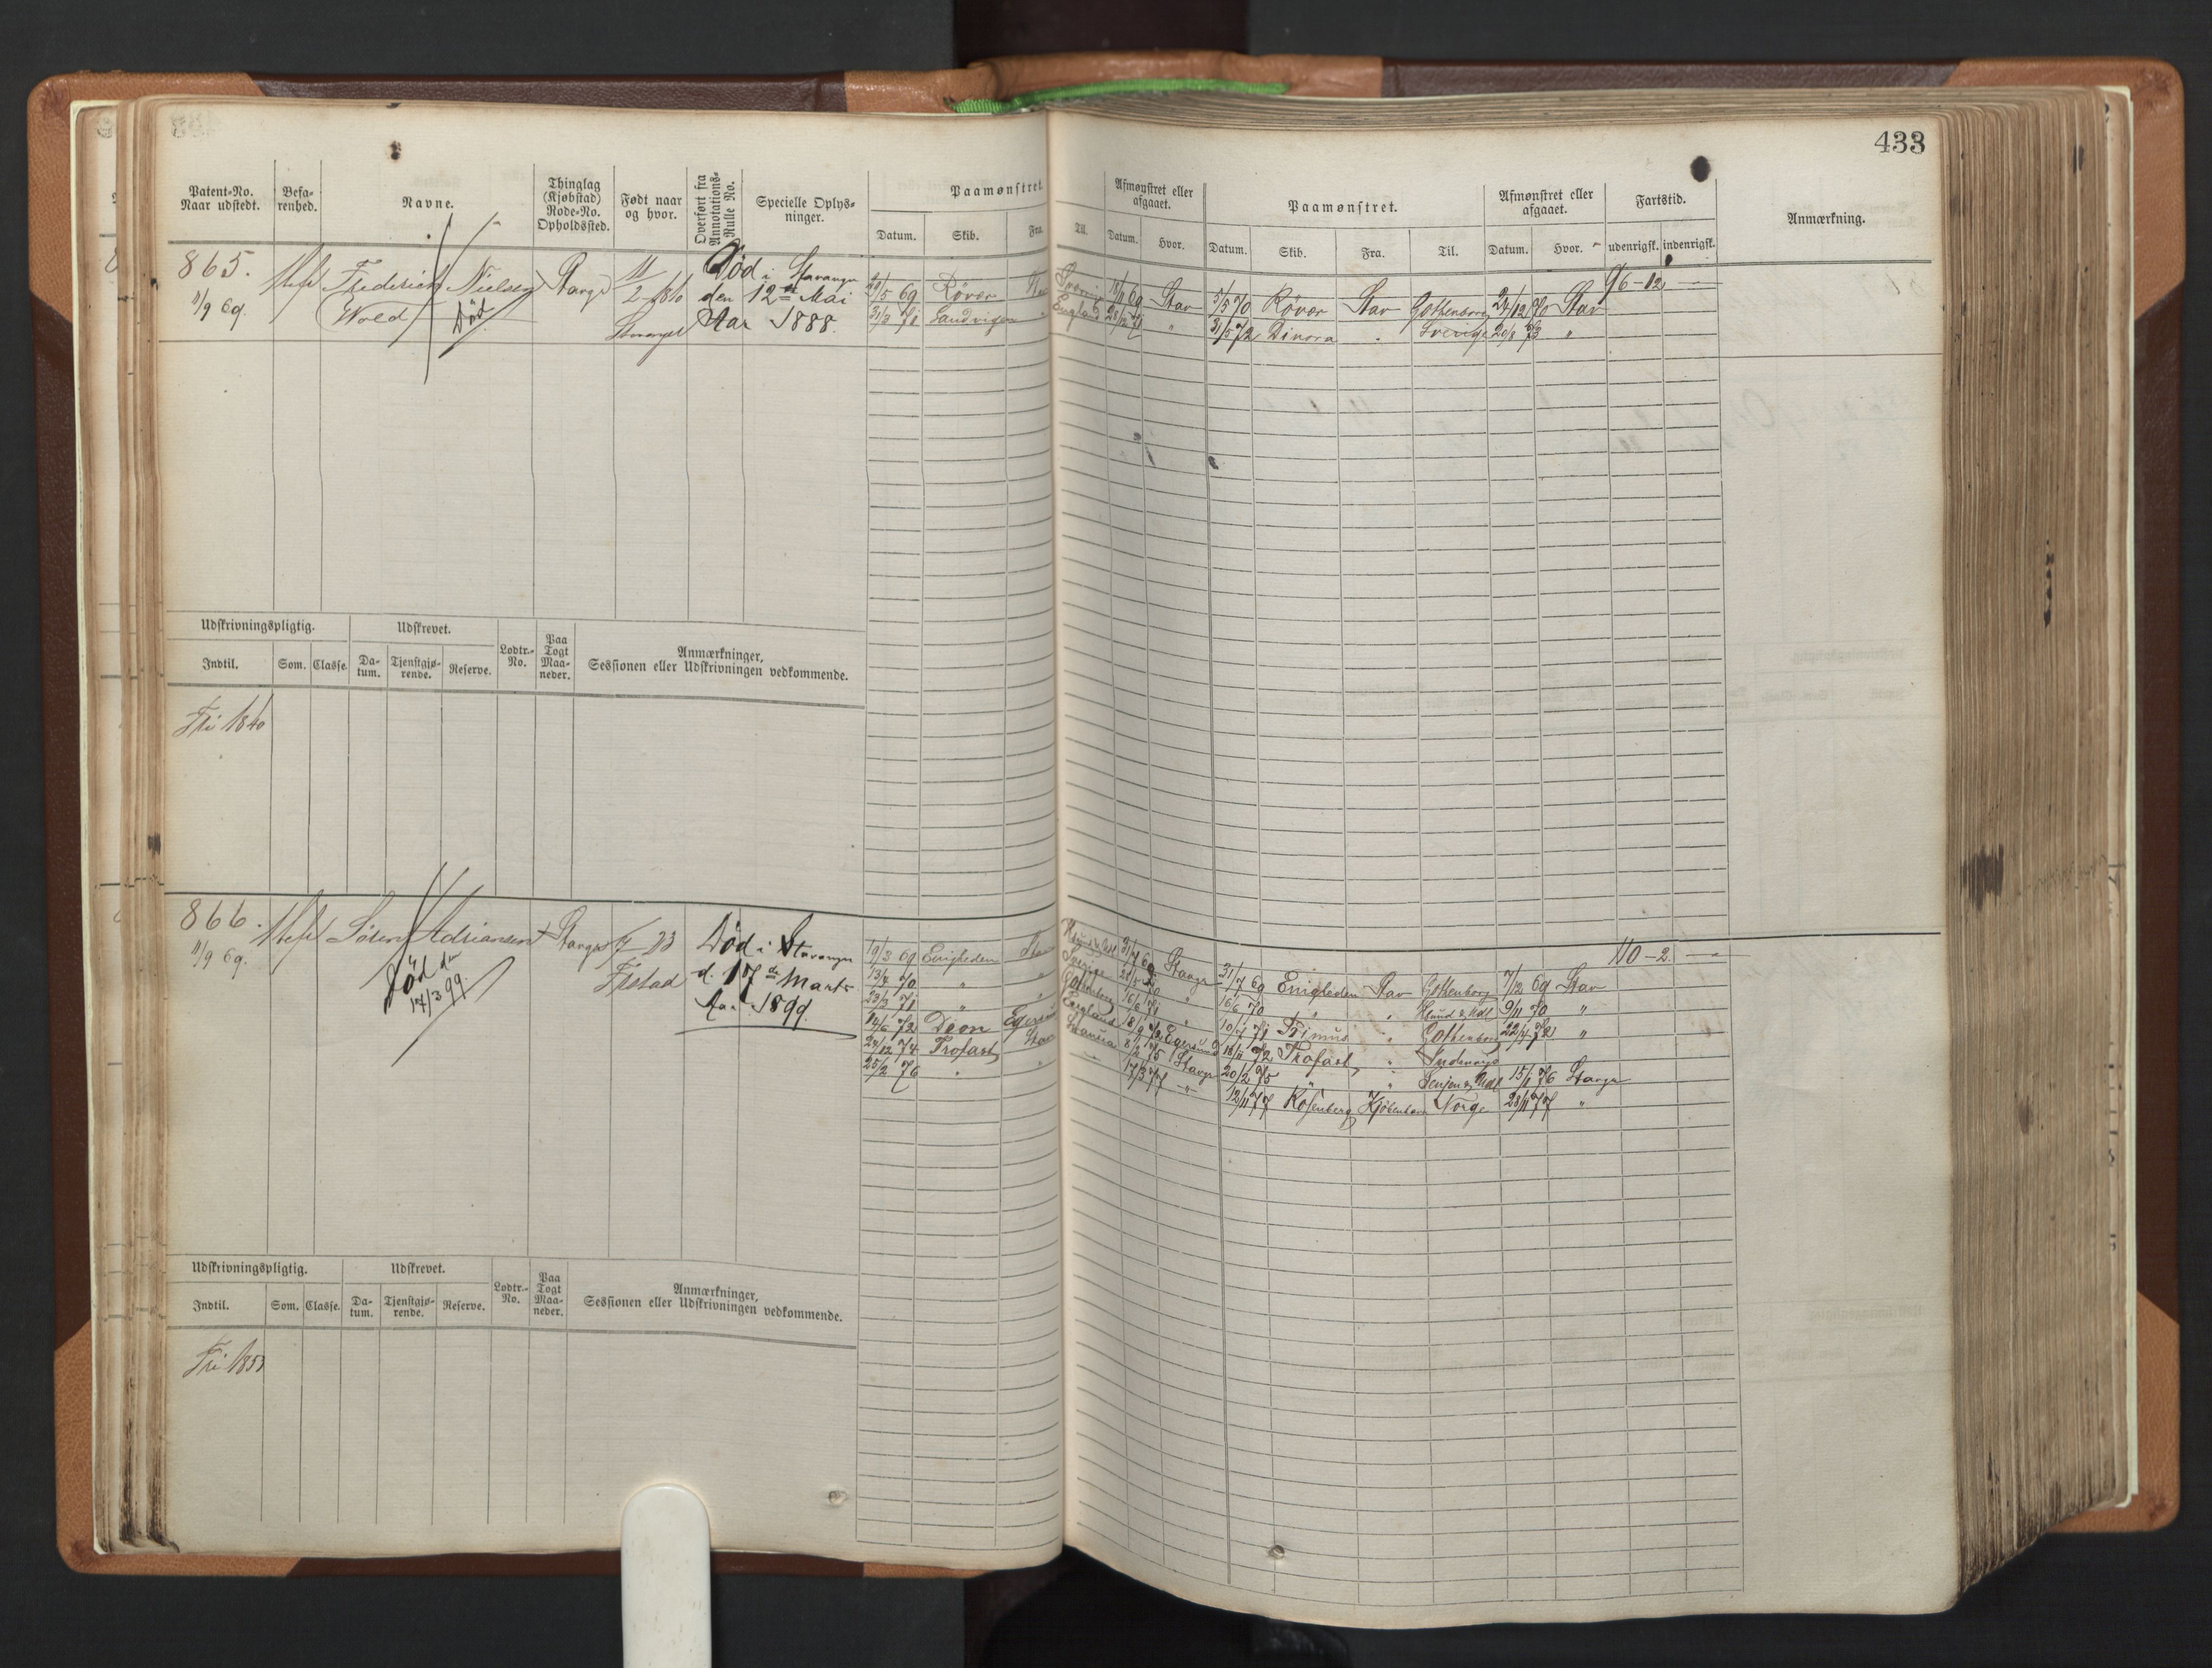 433
Patent-No.
Naar udstedt.
Befa-
renhed.
Navne.
Thinglag
(Kjøbstad)
Rode-No.
Opholdssted.
Født naar
og hvor.
Overført fra
Annotations-
Rulle No.
Specielle Oplys-
ninger.
Paamønstret.
Datum. Skib. Fra. Til.
Afmønstret eller
afgaaet.
Datum. Hvor.
Paamønstret.
Datum. Skib. Fra. Til.
Afmønstret eller
afgaaet.
Datum. Hvor.
Fartstid.
udenrigsk. indenrigsk.
Anmærkning.
865.
11/9 69.
Frederick Nielsen
Wold
Død
Død i Stavanger
den 12te Mai
Aar 1888.
/5 69 Röver
18/11 69 Stav
5/5 70 Röver Stav Gothenborg 24/12 70 Stav
96-12
31/3 71 Sandvigen " England
31/5 72 Dinora " Sverige 20/8 73 "
Udskrivningspligtig.
Indtil. Som. Classe.
Udskrevet.
Da-
tum.
Tjenstgjø-
rende.
Reserve.
Lodtr.-
No.
Paa
Togt
Maa-
neder.
Anmærkninger,
Sessionen eller Udskrivningen vedkommende.
Fri 1840
866.
11/9 69.
Sören Adriansen
Død den
17/3 99.
Død i Stavanger
d. 17de Marts
Aar 1899.
19/3 69 Enigheden Stav
31/7 69 Stavgr
31/7 69 Enigheden Stav Gothenborg 7/12 69 Stav
110-2
13/4 70 " " Sverige
16/6 70 " " 9/11 70 "
23/3 71 " " Gothenborg 16/6 71 "
10/7 71 Primus " Gothenborg 22/4 72 "
14/6 72 Dion Egersund England 18/9 72 Egersund
18/11 72 Trofast "
24/12 74 Trofast Stav 8/2 75 Stavgr
20/2 75 " 15/1 76 Stavgr
25/2 76 " " 17/3 77 "
12/11 77 Rosenberg Kjöbenhavn Norge 28/11 77 "
Udskrivningspligtig.
Indtil. Som. Classe.
Udskrevet.
Da-
tum.
Tjenstgjø-
rende.
Reserve.
Lodtr.-
No.
Paa
Togt
Maa-
neder.
Anmærkninger,
Sessionen eller Udskrivningen vedkommende.
Fri 1853